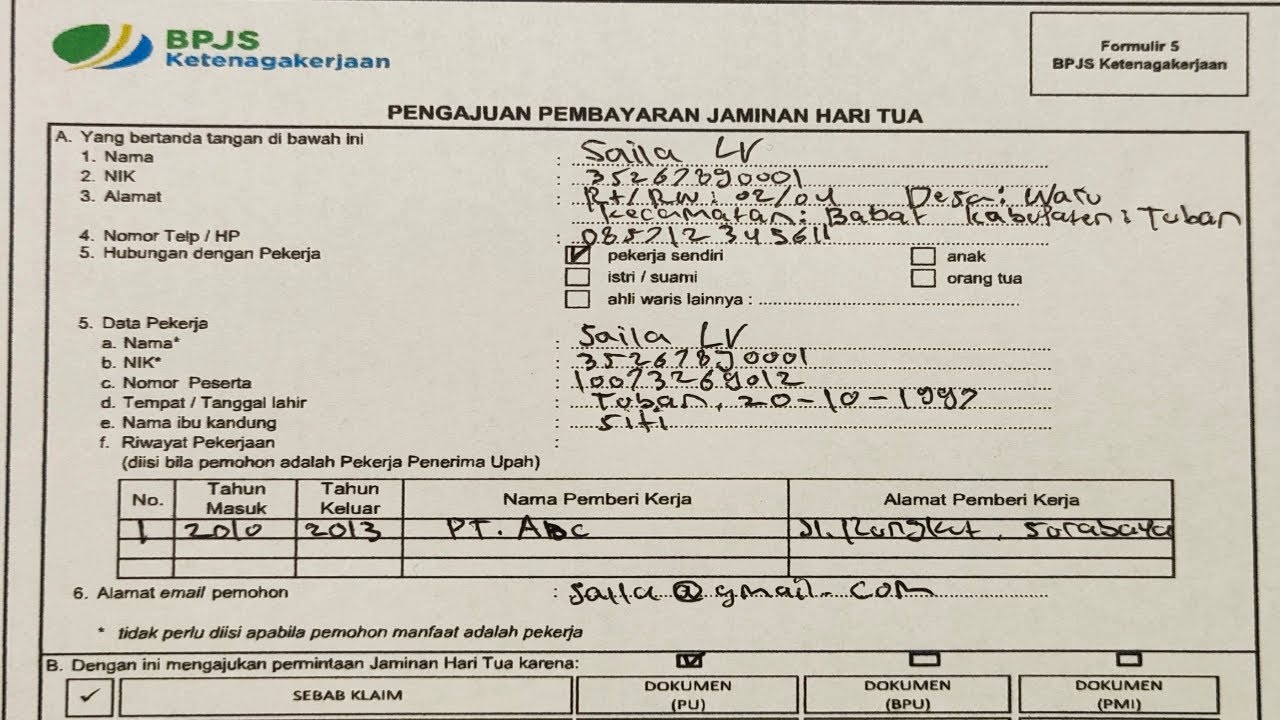 BPJS
Ketenagakerjaan
Formulir 5
BPJS Ketenagakerjaan
PENGAJUAN PEMBAYARAN JAMINAN HARI TUA
A. Yang bertanda tangan di bawah ini
1. Nama : Saila LV
2. NIK : 35267890001
3. Alamat : Rt/RW : 02/04 Desa : Waru
Kecamatan : Babat Kabupaten : Tuban
4. Nomor Telp / HP : 085712345611
5. Hubungan dengan Pekerja ✓ pekerja sendiri anak
istri / suami orang tua
ahli waris lainnya :
5. Data Pekerja
a. Nama* : Saila LV
b. NIK* : 35267890001
c. Nomor Peserta : 10073269012
d. Tempat / Tanggal lahir : Tuban, 20-10-1997
e. Nama ibu kandung : Siti
f. Riwayat Pekerjaan :
(diisi bila pemohon adalah Pekerja Penerima Upah)
No. Tahun Masuk Tahun Keluar Nama Pemberi Kerja Alamat Pemberi Kerja
1 2010 2013 PT. Abc Jl. Rungkut, Surabaya
6. Alamat email pemohon : saila@gmail.com
* tidak perlu diisi apabila pemohon manfaat adalah pekerja
B. Dengan ini mengajukan permintaan Jaminan Hari Tua karena: ✓
✓ SEBAB KLAIM DOKUMEN (PU) DOKUMEN (BPU) DOKUMEN (PMI)